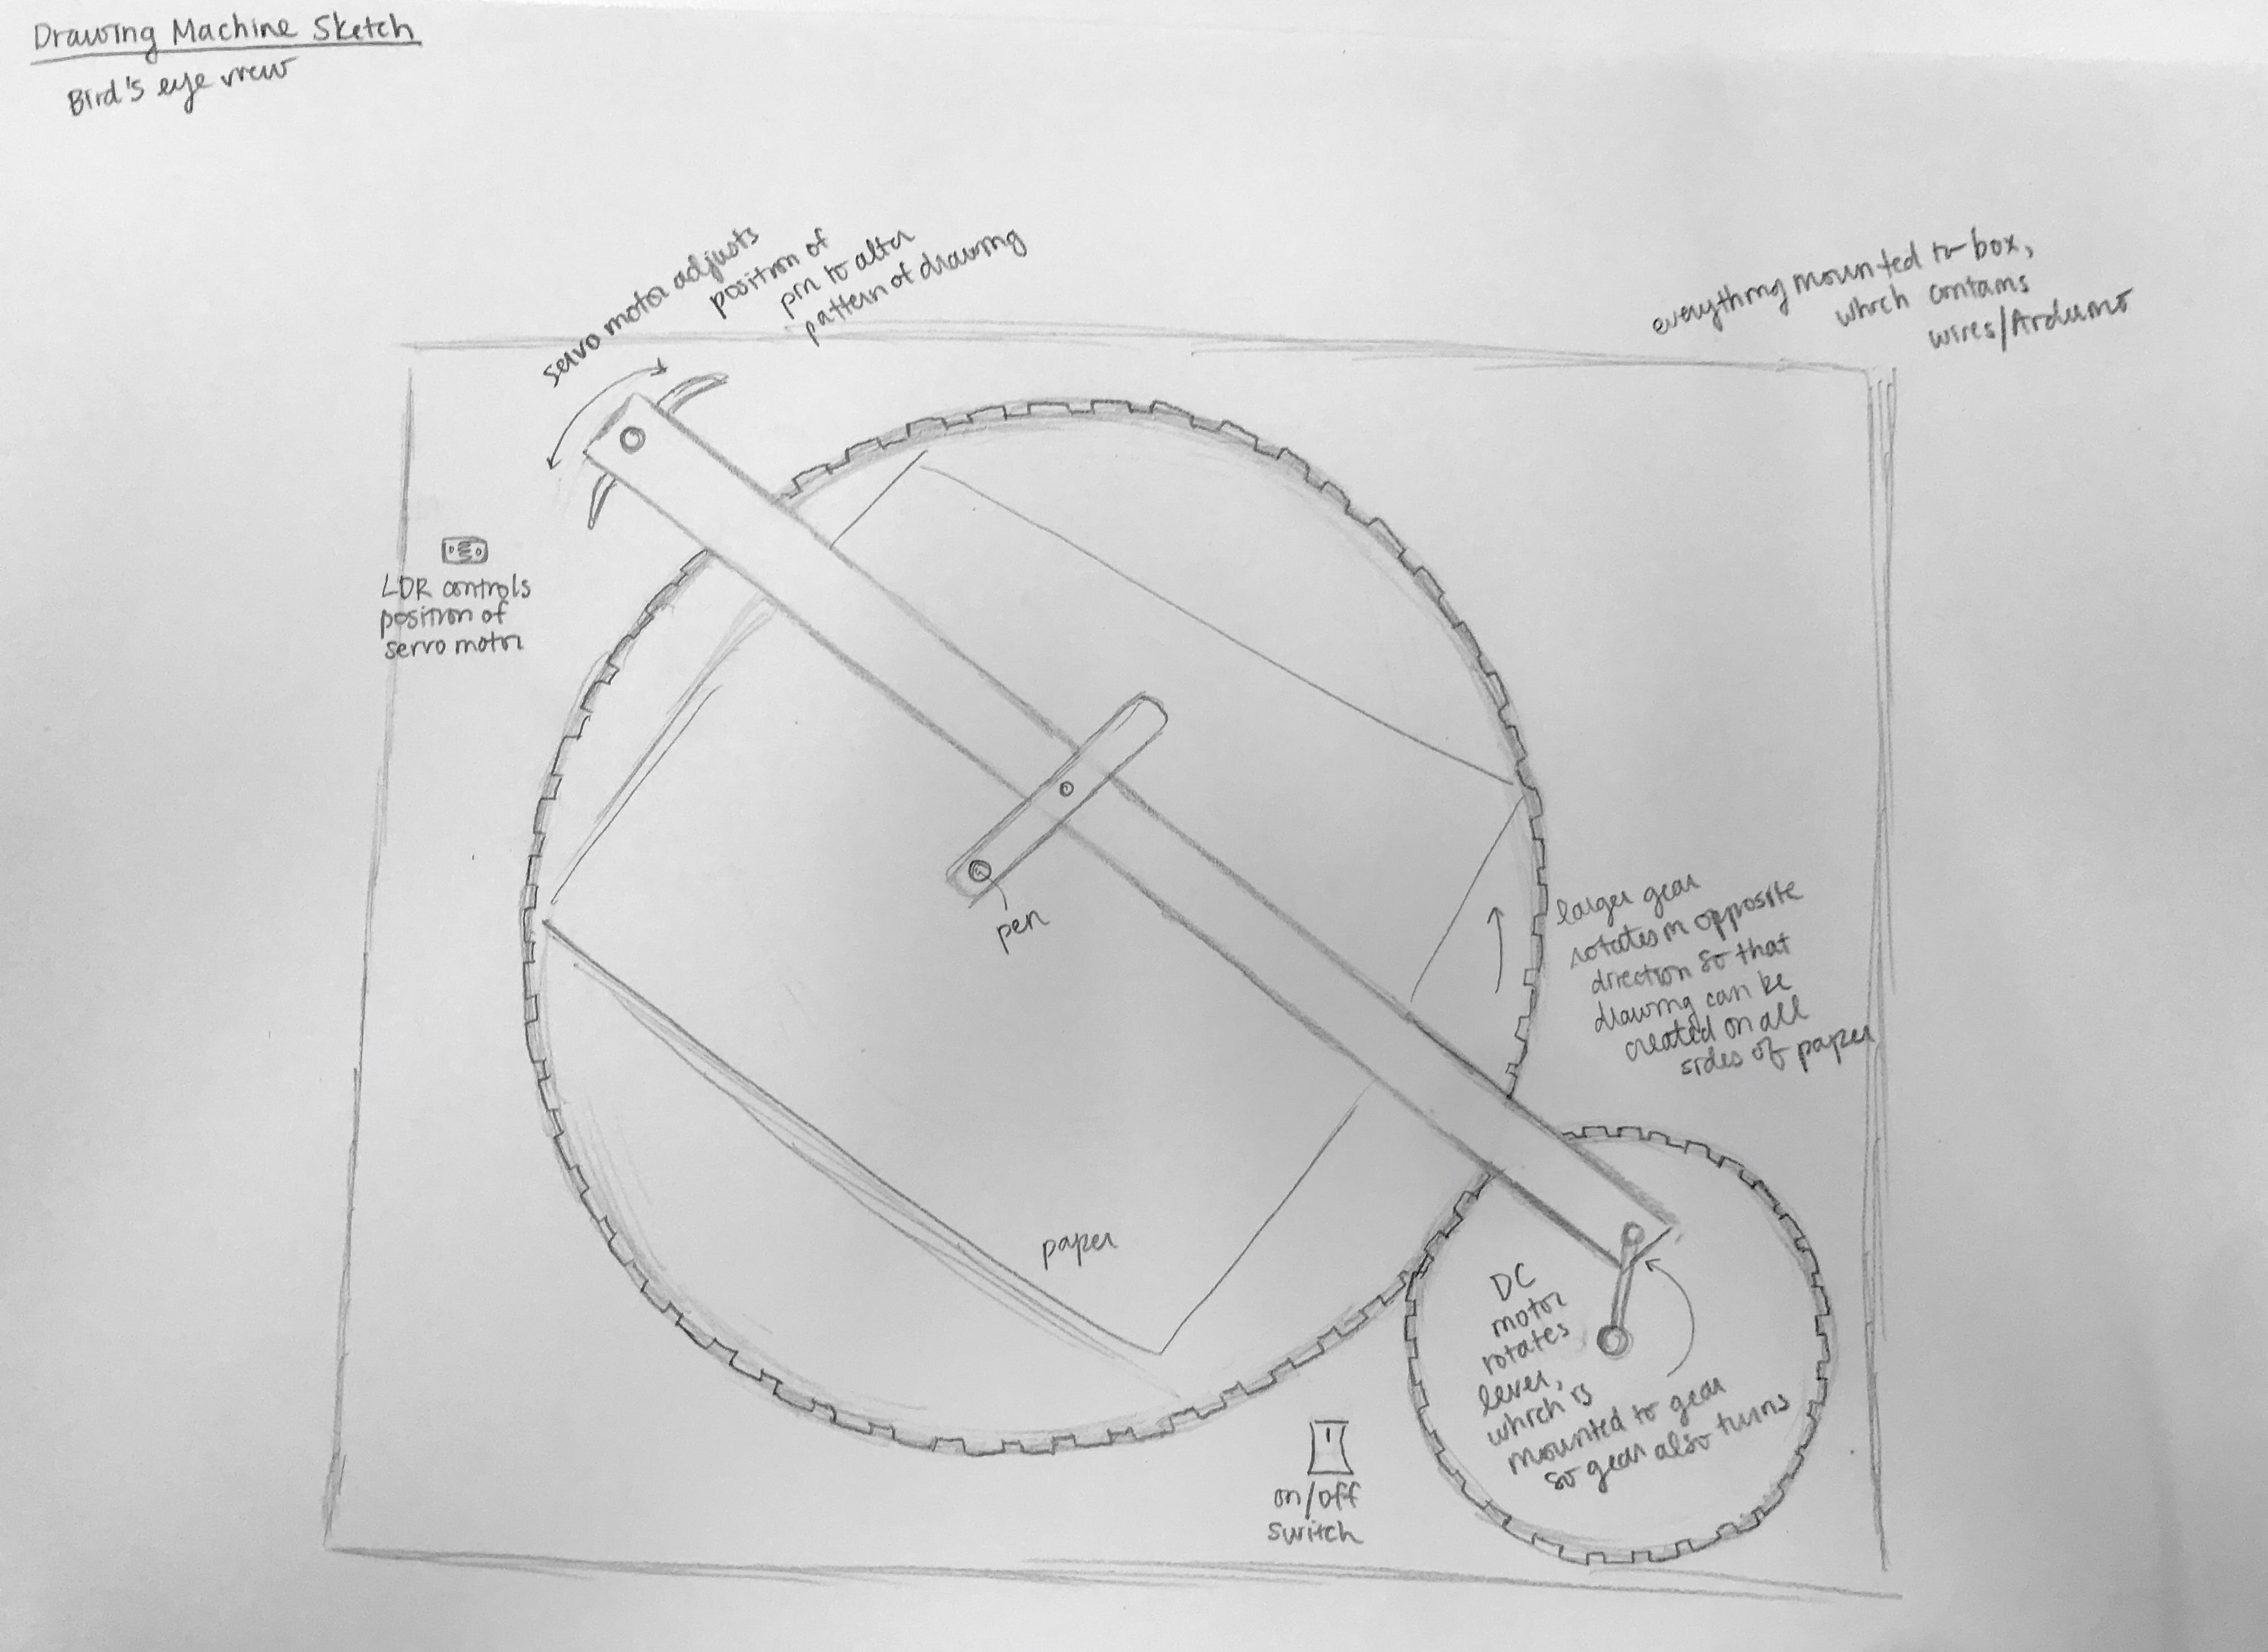 Drawing Machine Sketch
Bird's eye view
servo motor adjusts
position of
pin to alter
pattern of drawing
everything mounted to box,
which contains
wires/Arduino
LDR controls
position of
servo motor
pen
larger gear
rotates in opposite
direction so that
drawing can be
created on all
sides of paper
paper
DC
motor
rotates
lever,
which is
mounted to gear
so gear also turns
on/off
switch